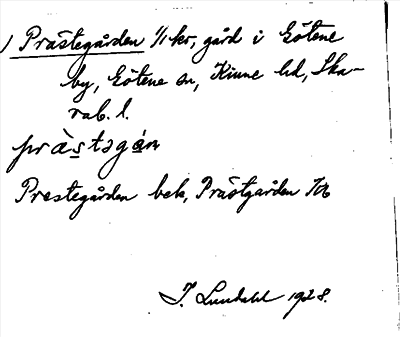 ) Prästegården 1/1 kr, gård i Götene
by, Götene sn, Kinne hd, Ska-
rab. l.
pràstəgán
Prestegården bek, Prästgården
I. Lundahl 1928.